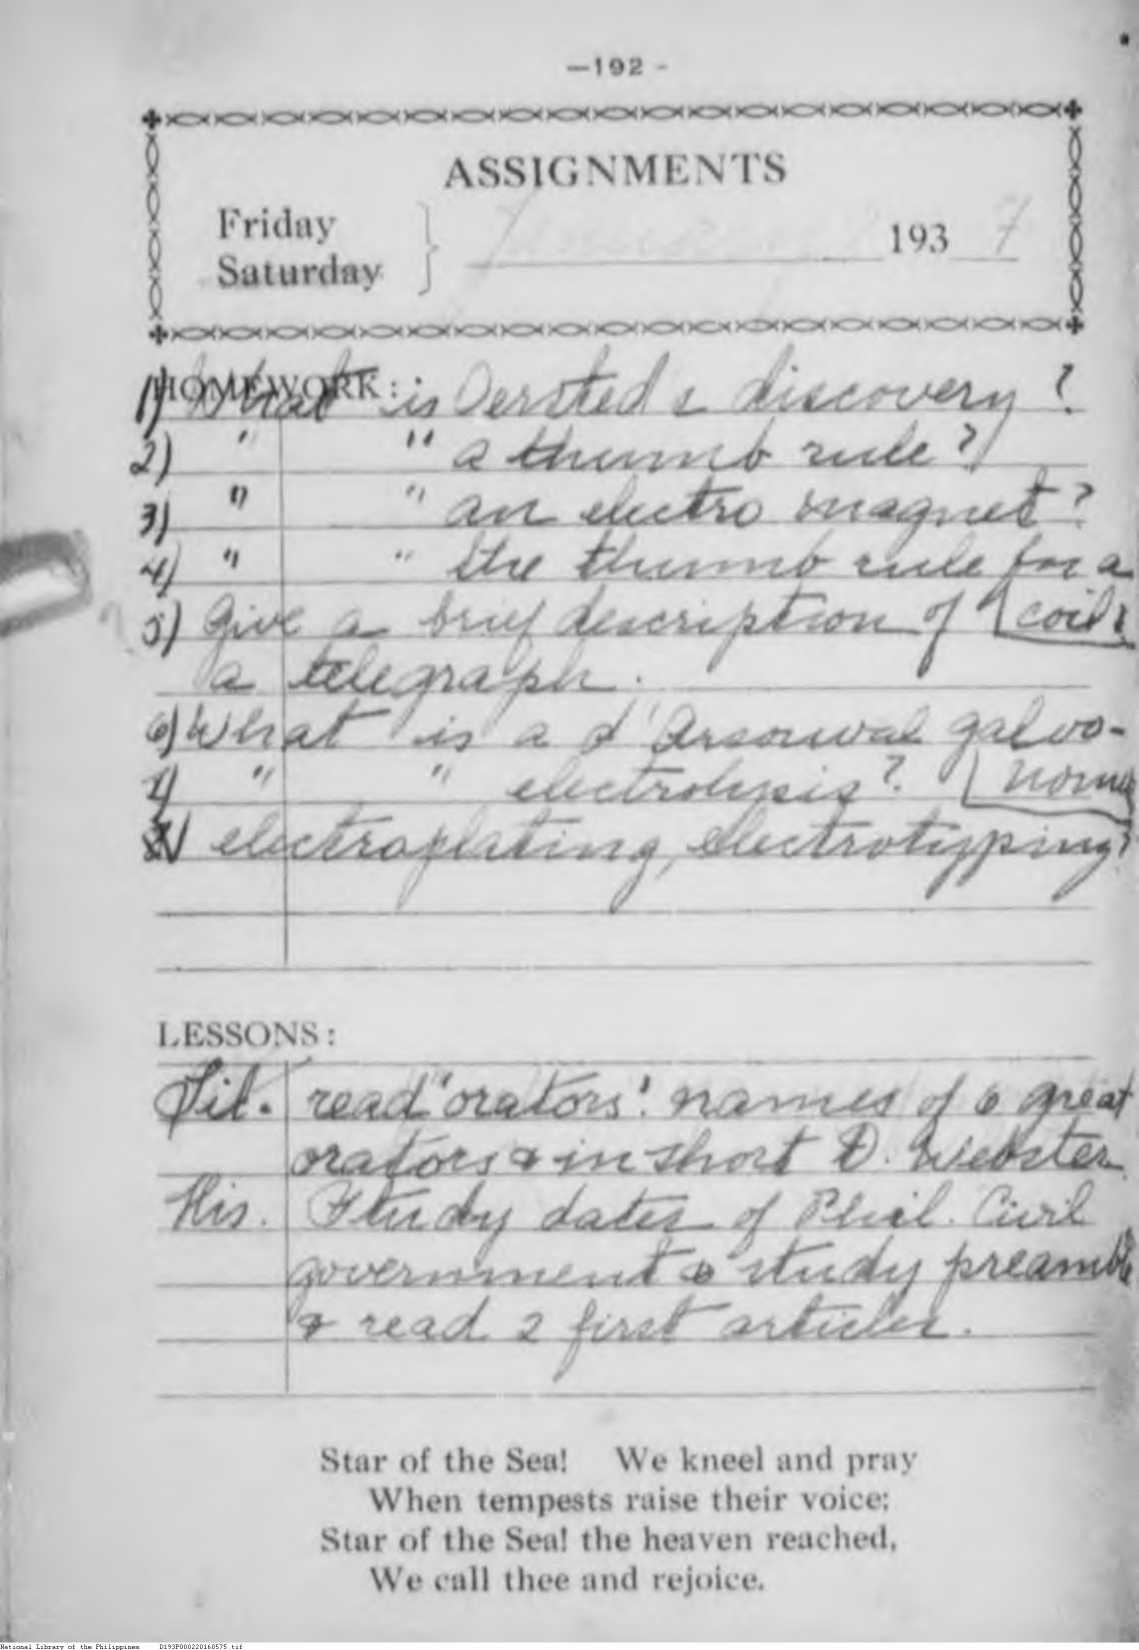 —192 -
ASSIGNMENTS
Friday
Saturday
193 7
HOMEWORK:
1) What is Oersted s discovery ?
2) " " a thumb rule ?
3) " " an electro magnet ?
4) " " the thumb rule for a
coil?
5) Give a brief description of
a telegraph.
6) What is a d'Arsonval galvo-
nome
7) " " electrolysis ?
8) electroplating, electrotyping?
LESSONS:
Lit. read "orators". names of 6 great
orators & in short D. Webster
His. Study dates of Phil. Civil
government & study preamble
& read 2 first articles.
Star of the Sea! We kneel and pray
When tempests raise their voice;
Star of the Sea! the heaven reached,
We call thee and rejoice.
National Library of the Philippines D193P000220160575.tif